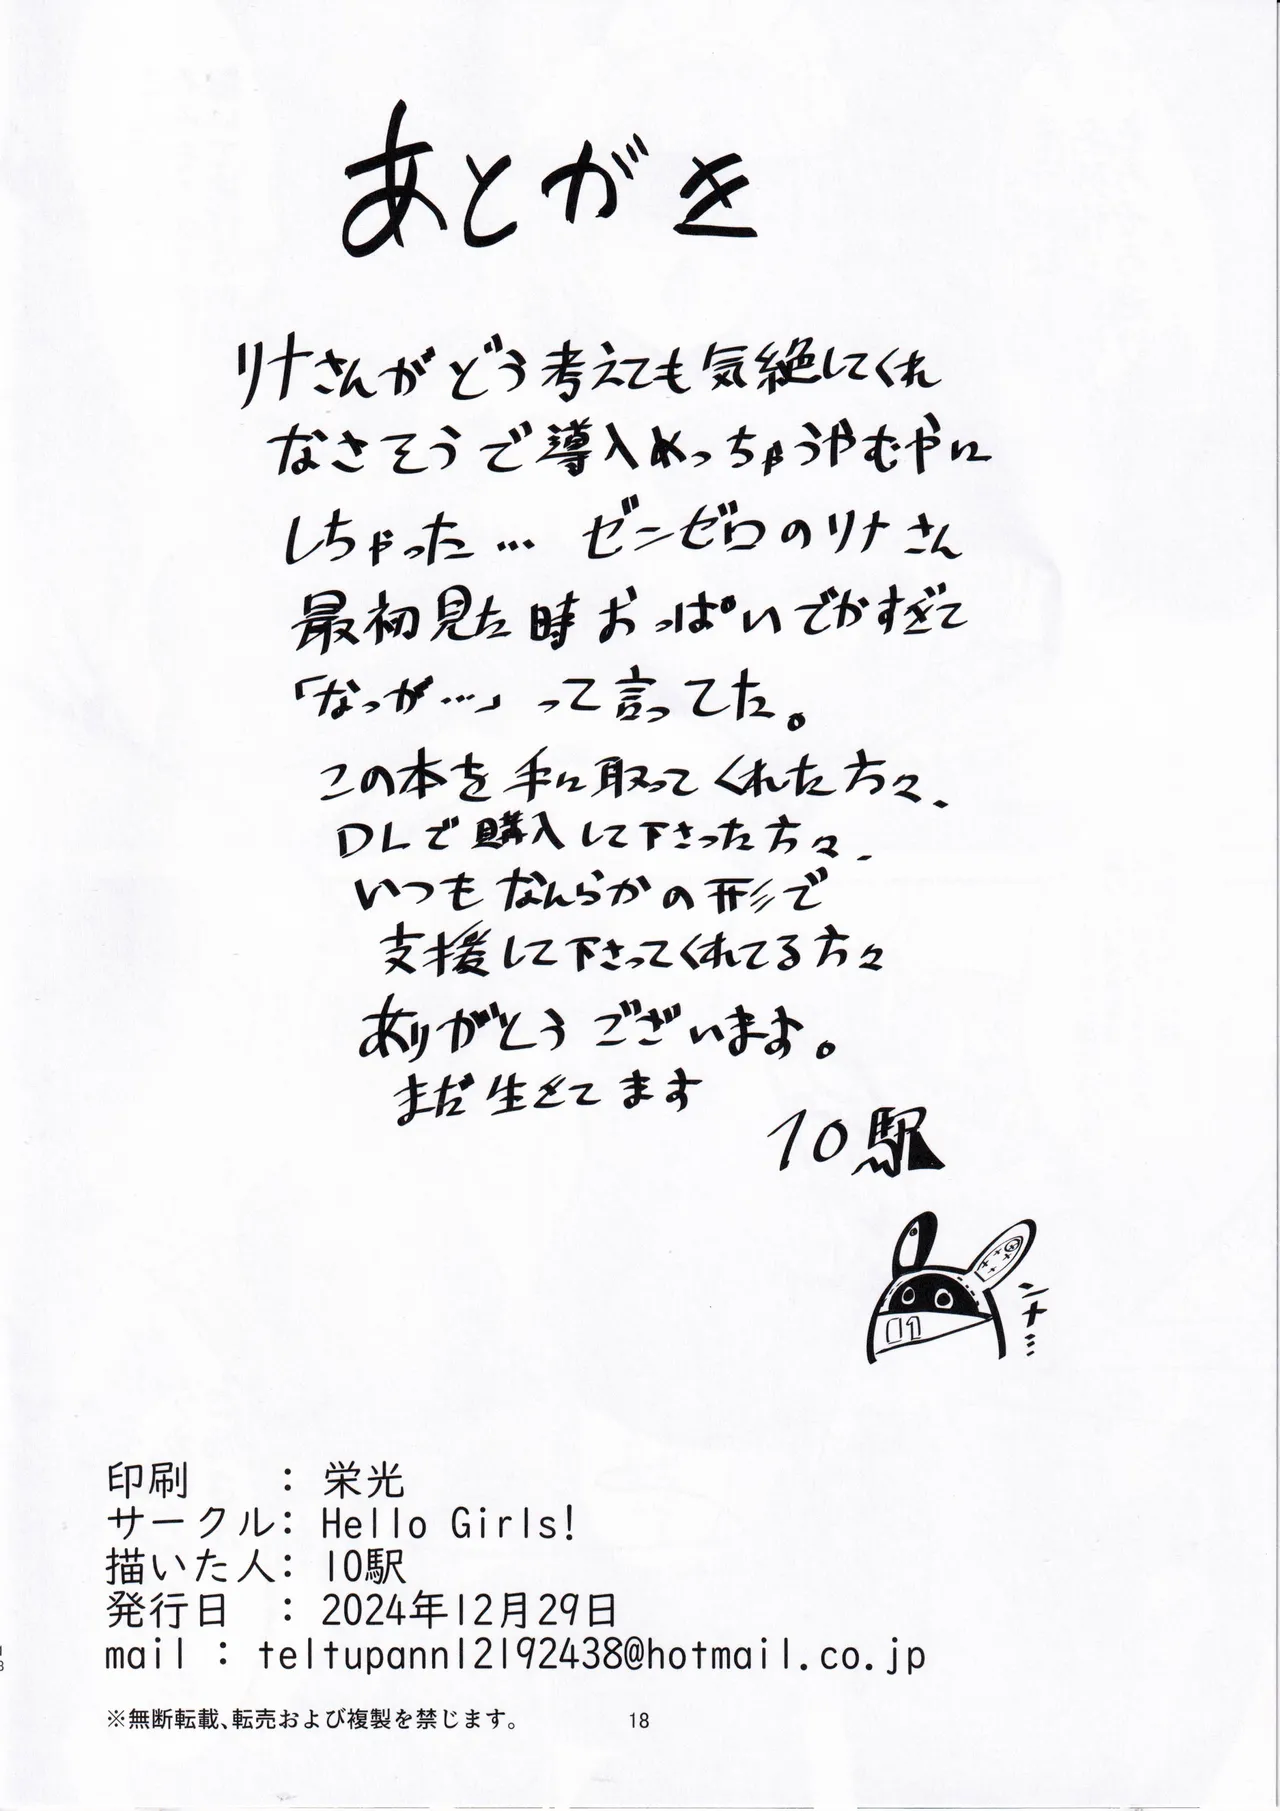 あとがき
リナさんがどう考えても気絶してくれ
なさそうで導入めっちゃうやむやに
しちゃった… ゼンゼロのリナさん
最初見た時おっぱいでかすぎて
「なっが…」って言ってた。
この本を手に取ってくれた方々、
DLで購入して下さった方々、
いつもなんらかの形で
支援して下さってくれてる方々
ありがとうございます。
まだ生きてます
10駅
ンナ…
01
印刷　　: 栄光
サークル: Hello Girls!
描いた人: 10駅
発行日　: 2024年12月29日
mail : teltupann12192438@hotmail.co.jp
※無断転載、転売および複製を禁じます。
18